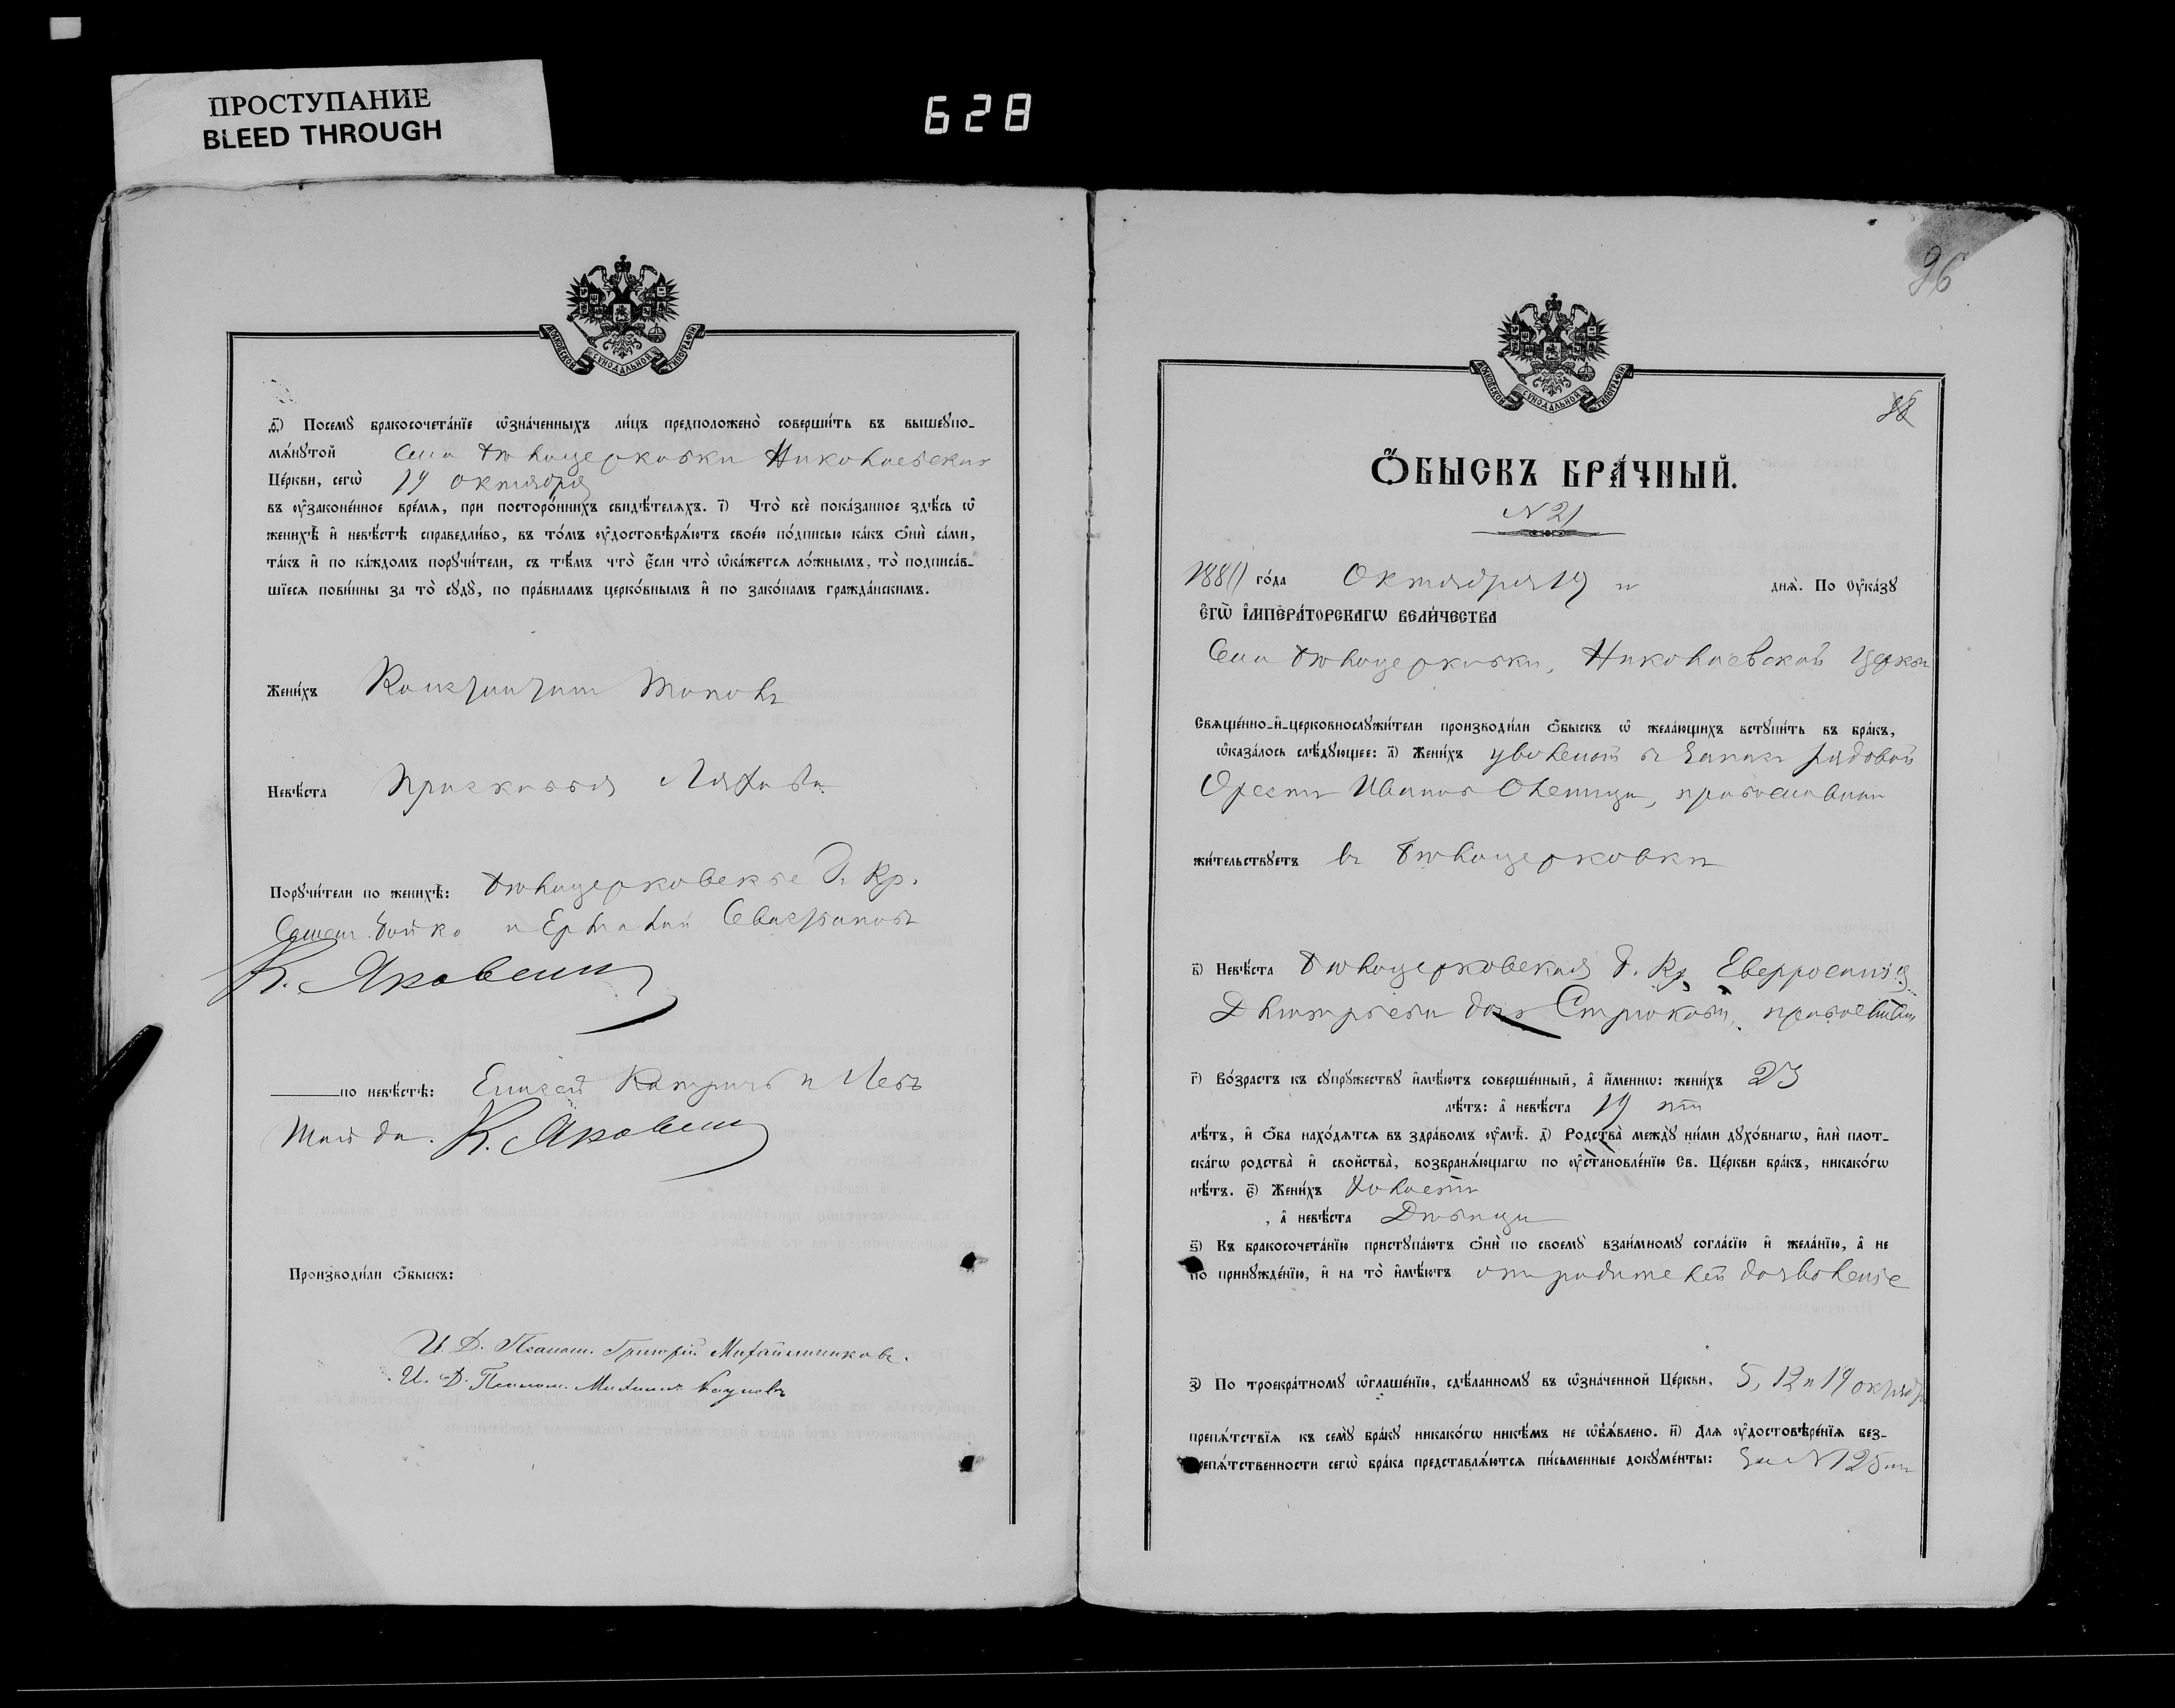 ПРОСТУПАНИЕ
BLEED THROUGH
628
МОСКОВСКОЙ СѴНОДАЛЬНОЙ ТИПОГРАФІИ
ѳ҃) Посемꙋ̀ бракосочета́нїе ѡ҆зна́ченныхъ ли́цъ предположено̀ соверши́ть въ вышеꙋпо-
мѧ́нꙋтой Села Бѣлоцерковки Николаевской
Це́ркви, сегѡ̀ 19 октября
въ ᲂу҆зако́ненное вре́мѧ, при посторо́ннихъ свидѣ́телѧхъ. і҃) Что̀ всѐ пока́занное здѣ́сь ѡ҆
женихѣ̀ и҆ невѣ́стѣ справедли́во, въ то́мъ ᲂу҆достовѣрѧ́ютъ свое́ю по́дписью ка́къ ѻ҆нѝ са́ми,
та́къ и҆ по ка́ждомъ порꙋчи́тели, съ тѣ́мъ что̀ є҆́сли что̀ ѡ҆ка́жетсѧ ло́жнымъ, то̀ подписа́в-
шїесѧ пови́нны за то̀ сꙋдꙋ̀, по пра́виламъ церко́внымъ и҆ по зако́намъ гражда́нскимъ.
Жени́хъ Константинъ
Невѣ́ста
Порꙋчи́тели по женихѣ̀: Бѣлоцерковскіе Г. Кр.
Бойко и
К. Яковенко
по невѣ́стѣ: Елисей и
К. Яковенко
Производи́ли ѻ҆́быскъ:
И. Д. Псалом. Григорій Михайличенковъ.
И. Д. Псалом. Михаилъ
96
МОСКОВСКОЙ СѴНОДАЛЬНОЙ ТИПОГРАФІИ
Ѻ҆́БЫСКЪ БРА́ЧНЫЙ.
N 21
го́да Октября 19 днѧ̀. По ᲂу҆ка́зꙋ
Є҆ГѠ̀ И҆МПЕРА́ТОРСКАГѠ ВЕЛИ́ЧЕСТВА
Села Бѣлоцерковки, Николаевской Церкви
Свѧще́нно-и҆-церковнослꙋжи́тели производи́ли ѻ҆́быскъ ѡ҆ жела́ющихъ встꙋпи́ть въ бра́къ,
ѡ҆каза́лось слѣ́дꙋющее: а҃) Жени́хъ уволеный въ запасъ рядовой
Орестъ Ивановъ Оленица, православный
жи́тельствꙋетъ въ Бѣлоцерковки
в҃) Невѣ́ста Бѣлоцерковская Г. Кр. Евфросинія
Дмитріева дочь Стрюкова, православна
г҃) Во́зрастъ къ сꙋпрꙋ́жествꙋ и҆мѣ́ютъ соверше́нный, а҆ и҆́меннѡ: жени́хъ 23
лѣ́тъ: а҆ невѣ́ста 19
лѣ́тъ, и҆ ѻ҆́ба нахо́дѧтсѧ въ здра́вомъ ᲂу҆мѣ̀. д҃) Родства̀ междꙋ̀ ни́ми дꙋхо́внагѡ, и҆лѝ плот-
ска́гѡ родства̀ и҆ сво́йства, возбранѧ́ющагѡ по ᲂу҆становле́нїю Св. Це́ркви бра́къ, никако́гѡ
нѣ́тъ. є҃) Жени́хъ холостъ
, а҆ невѣ́ста дѣвица
ѕ҃) Къ бракосочета́нїю пристꙋпа́ютъ ѻ҆нѝ по своемꙋ̀ взаи́мномꙋ согла́сїю и҆ жела́нїю, а҆ не
по принꙋжде́нїю, и҆ на то̀ и҆мѣ́ютъ отъ родителей дозволеніе
з҃) По троекра́тномꙋ ѡ҆глаше́нїю, сдѣ́ланномꙋ въ ѡ҆зна́ченной Це́ркви, 5, 12 и 19 октября
препѧ́тствїѧ къ семꙋ̀ бра́кꙋ никако́гѡ никѣ́мъ не ѡ҆б̾ѧ́влено. и҃) Длѧ ᲂу҆достовѣре́нїѧ без-
препѧ́тственности сегѡ̀ бра́ка представлѧ́ютсѧ пи́сьменные докꙋме́нты: За N 125